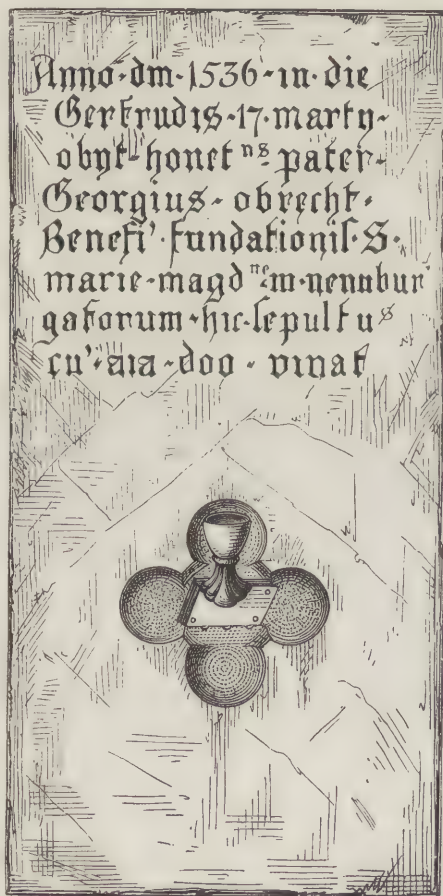 Anno·dm·1536·in·die
Gertrudis·17·marty·
obyt·honet ns·pater·
Georgius·obrecht·
Benefi'·fundationis·S·
marie·magd ne·m·nennbur
gatorum·hic·sepultus
cu'·aia·doo·vinat